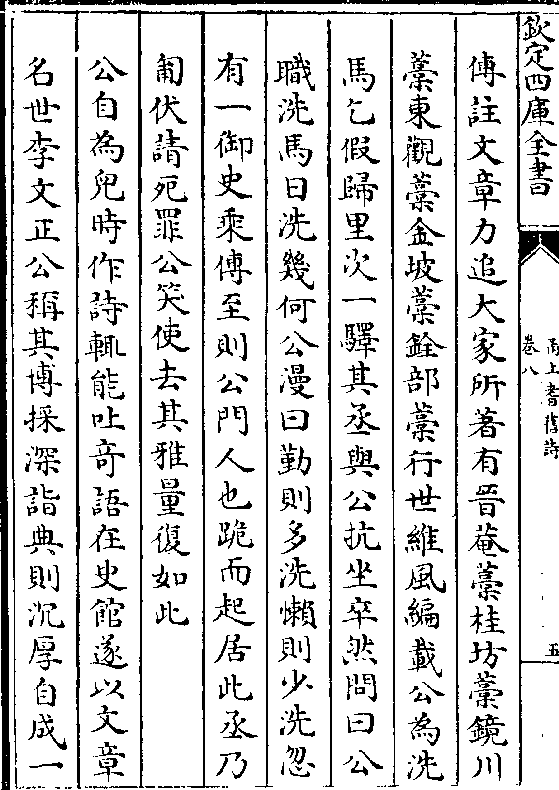 欽定四庫全書
卷八
五
傳註文章力追大家所著有晉菴藁桂坊藁鏡川
藁東觀藁金坡藁銓部藁行世維風編載公為洗
馬乞假歸里次一驛其丞與公抗坐卒然問曰公
職洗馬日洗幾何公漫曰勤則多洗懶則少洗忽
有一御史乘傳至則公門人也跪而起居此丞乃
匍伏請死罪公笑使去其雅量復如此
公自為兒時作詩輒能吐奇語在史館遂以文章
名世李文正公稱其博採深詣典則沉厚自成一